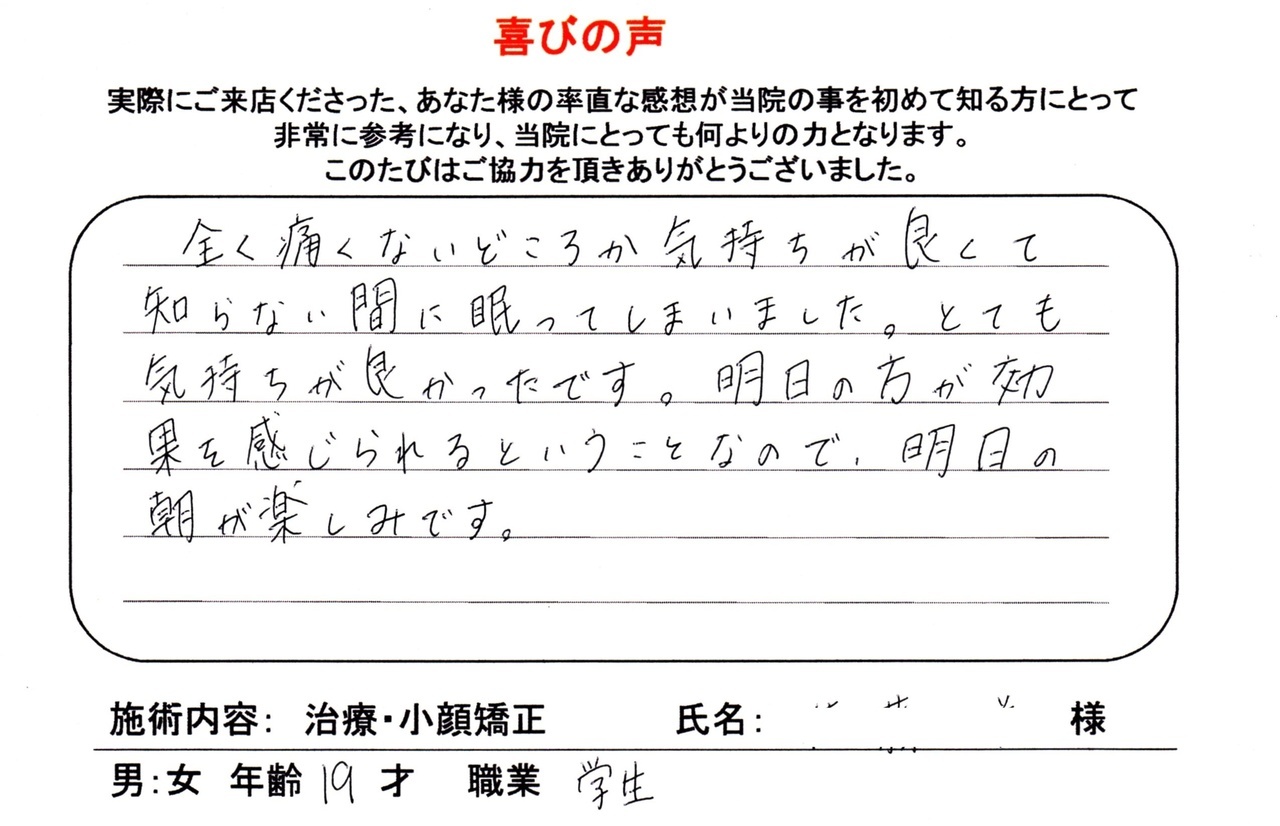 喜びの声
実際にご来店くださった、あなた様の率直な感想が当院の事を初めて知る方にとって
非常に参考になり、当院にとっても何よりの力となります。
このたびはご協力を頂きありがとうございました。
全く痛くないどころか気持ちが良くて
知らない間に眠ってしまいました。とても
気持ちが良かったです。明日の方が効
果を感じられるということなので、明日の
朝が楽しみです。
施術内容: 治療・小顔矯正 氏名: 様
男:女 年齢 19 才 職業 学生